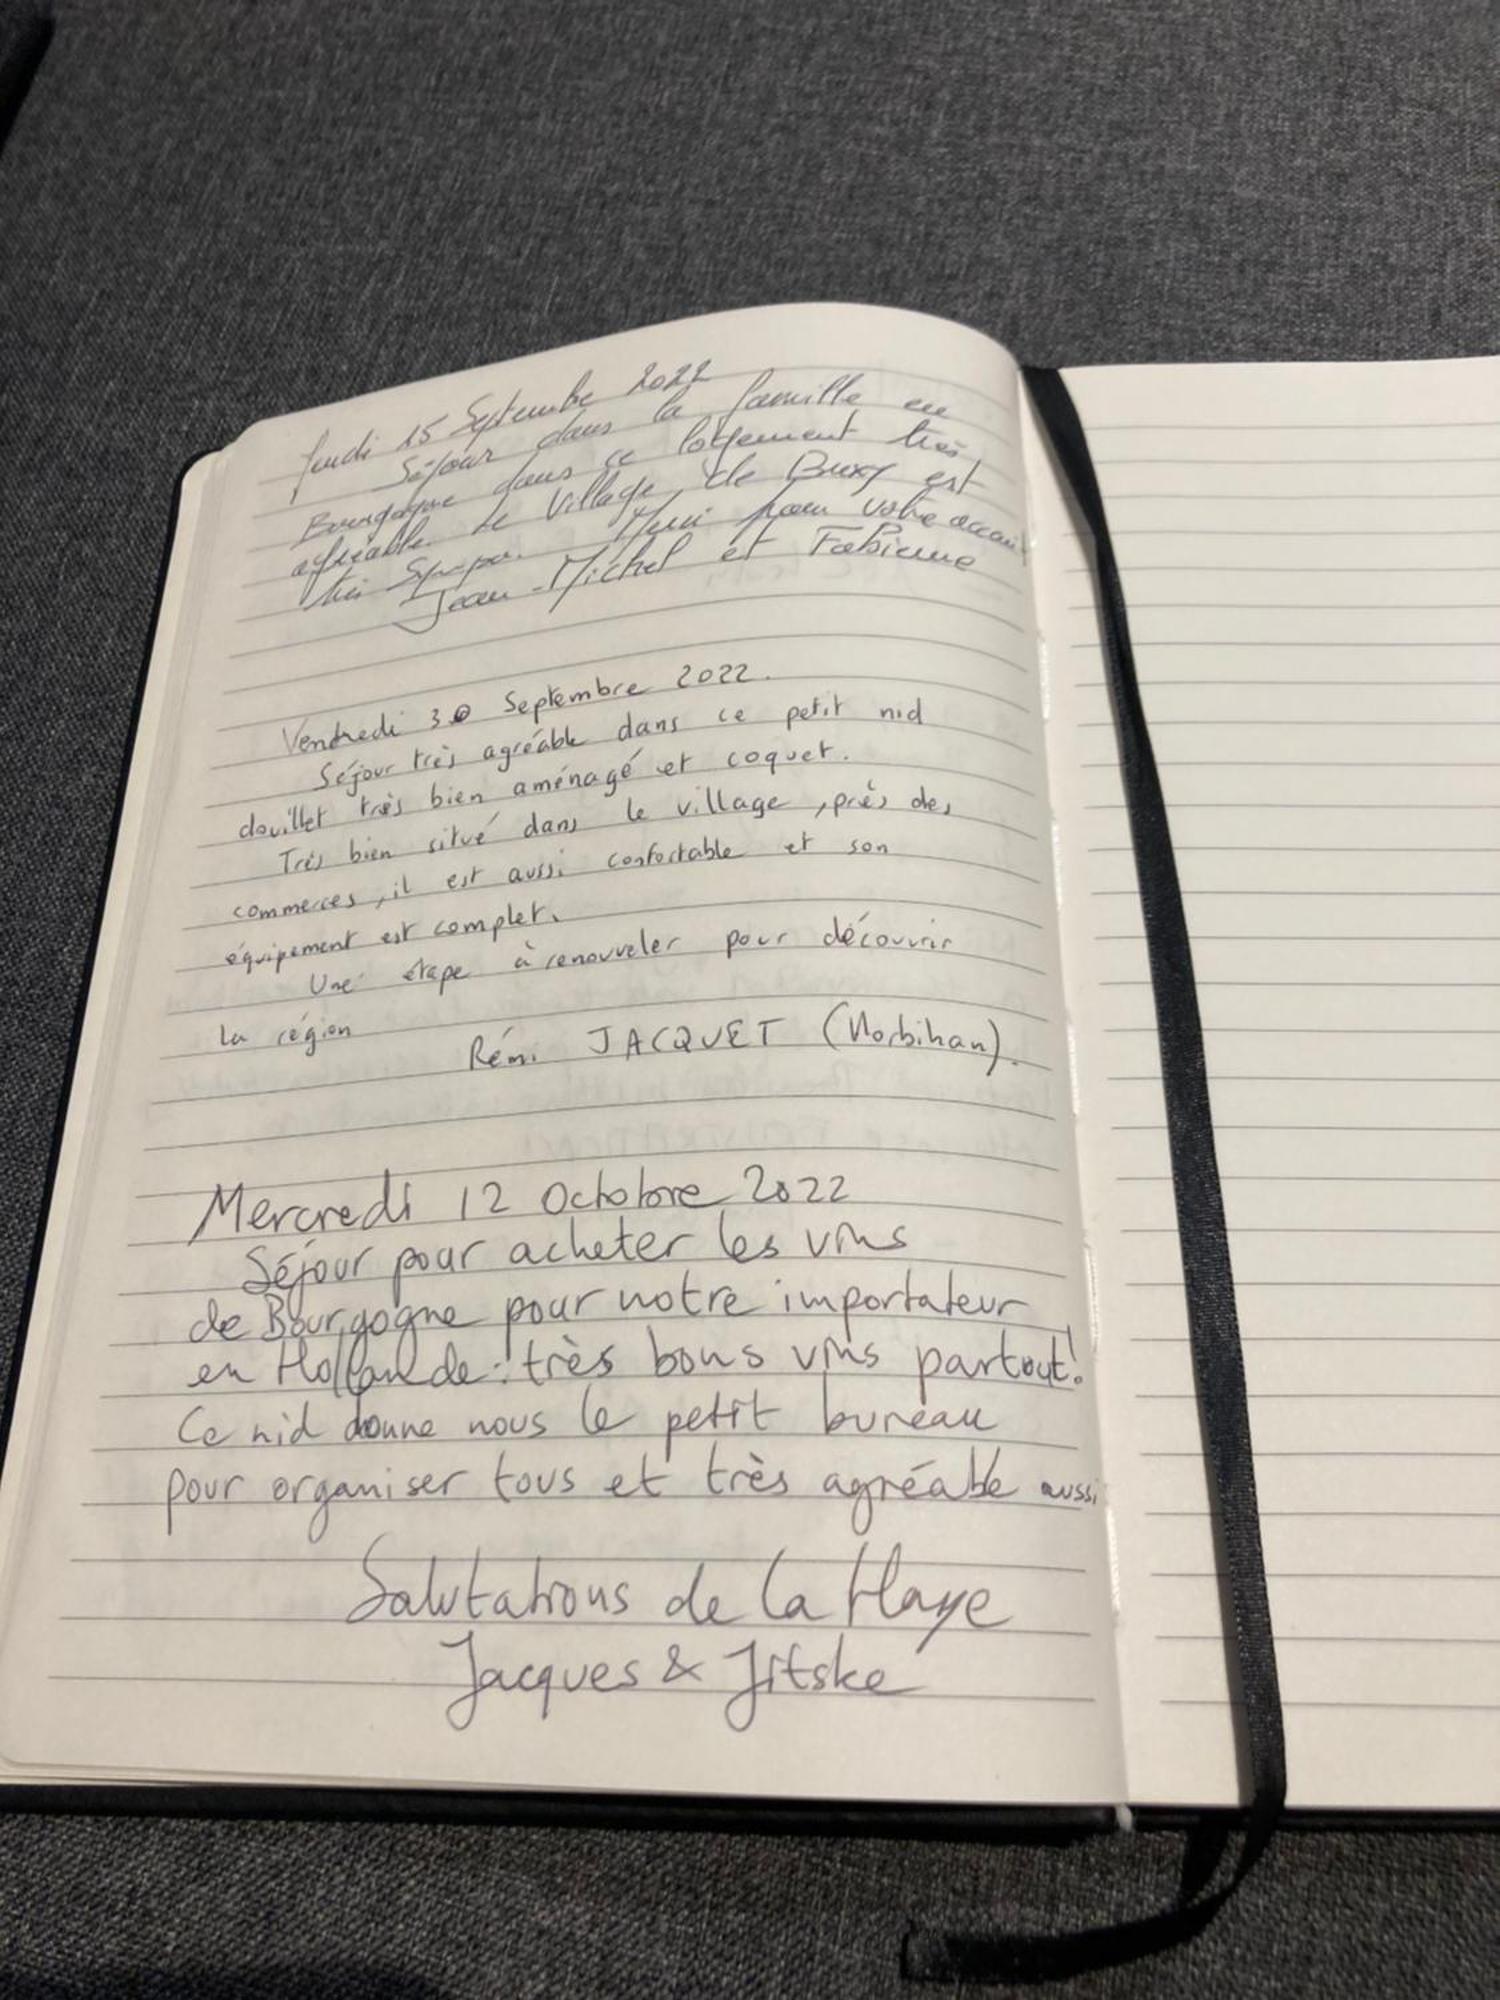 Jeudi 15 Septembre 2022
Séjour dans la famille en
Bourgogne dans ce logement très
agréable. Le Village de Buxy est
très Sympa. Merci pour votre accueil
Jean-Michel et Fabienne
Vendredi 30 Septembre 2022.
Séjour très agréable dans ce petit nid
douillet très bien aménagé et coquet.
Très bien situé dans le village, près des
commerces, il est aussi confortable et son
équipement est complet.
Une étape à renouveler pour découvrir
la région
Rémi JACQUET (Morbihan).
Mercredi 12 Octobre 2022
Séjour pour acheter les vins
de Bourgogne pour notre importateur
en Hollande: très bons vins partout!
Ce nid donne nous le petit bureau
pour organiser tous et très agréable aussi
Salutations de La Haye
Jacques & Jitske